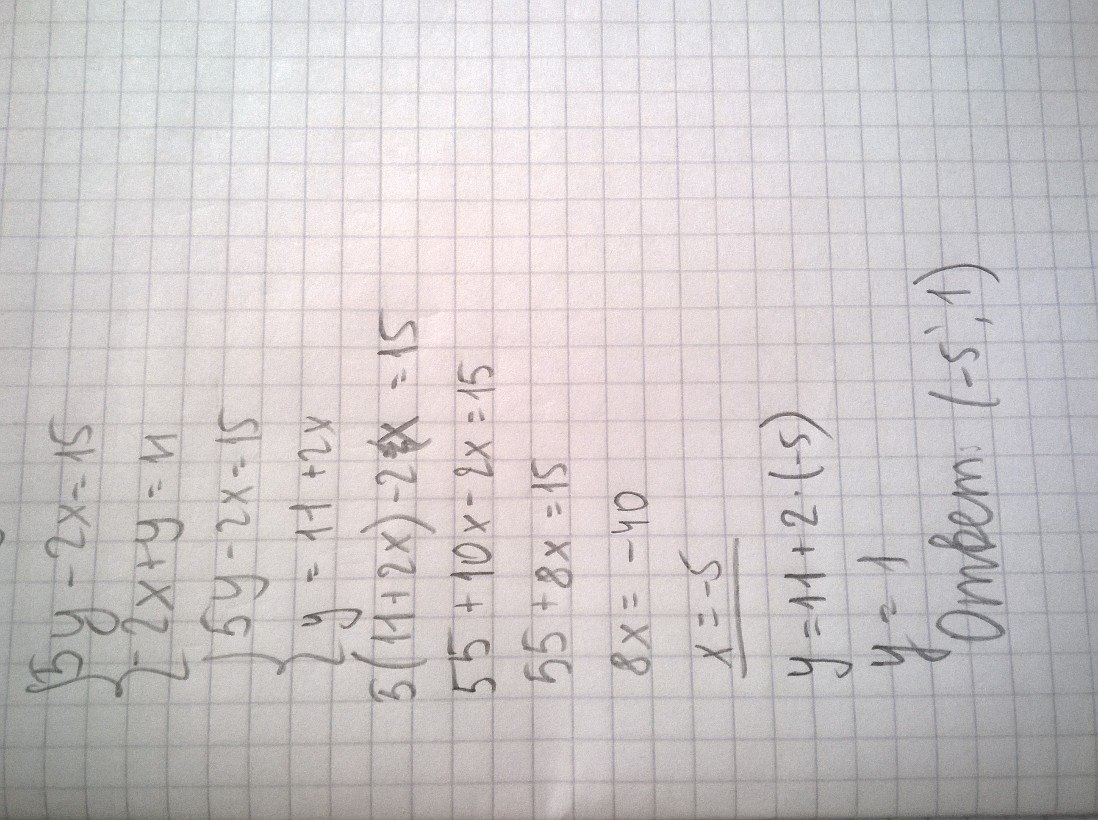 5y - 2x = 15
-2x + y = 11
5y - 2x = 15
y = 11 + 2x
5(11 + 2x) - 2x = 15
55 + 10x - 2x = 15
55 + 8x = 15
8x = -40
x = -5
y = 11 + 2 · (-5)
y = 1
Ответ: (-5; 1)